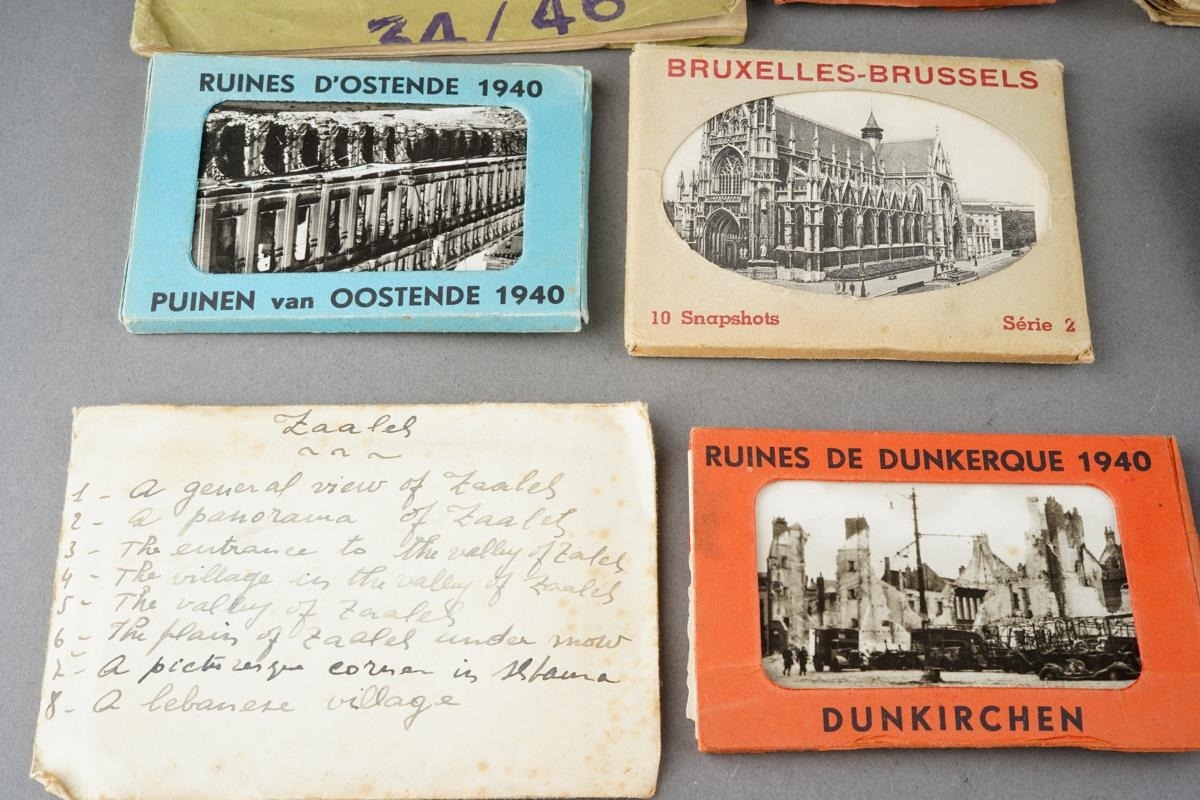 34/46
RUINES D'OSTENDE 1940
PUINEN van OOSTENDE 1940
BRUXELLES-BRUSSELS
10 Snapshots
Série 2
Zaaleh
1 - A general view of Zaaleh
2 - a panorama of Zaaleh
3 - The entrance to the valley of Zaleh
4 - The village in the valley of Zaaleh
5 - The valley of Zaaleh
6 - The plain of Zaaleh under snow
7 - A picturesque corner in
8 - A lebanese village
RUINES DE DUNKERQUE 1940
DUNKIRCHEN